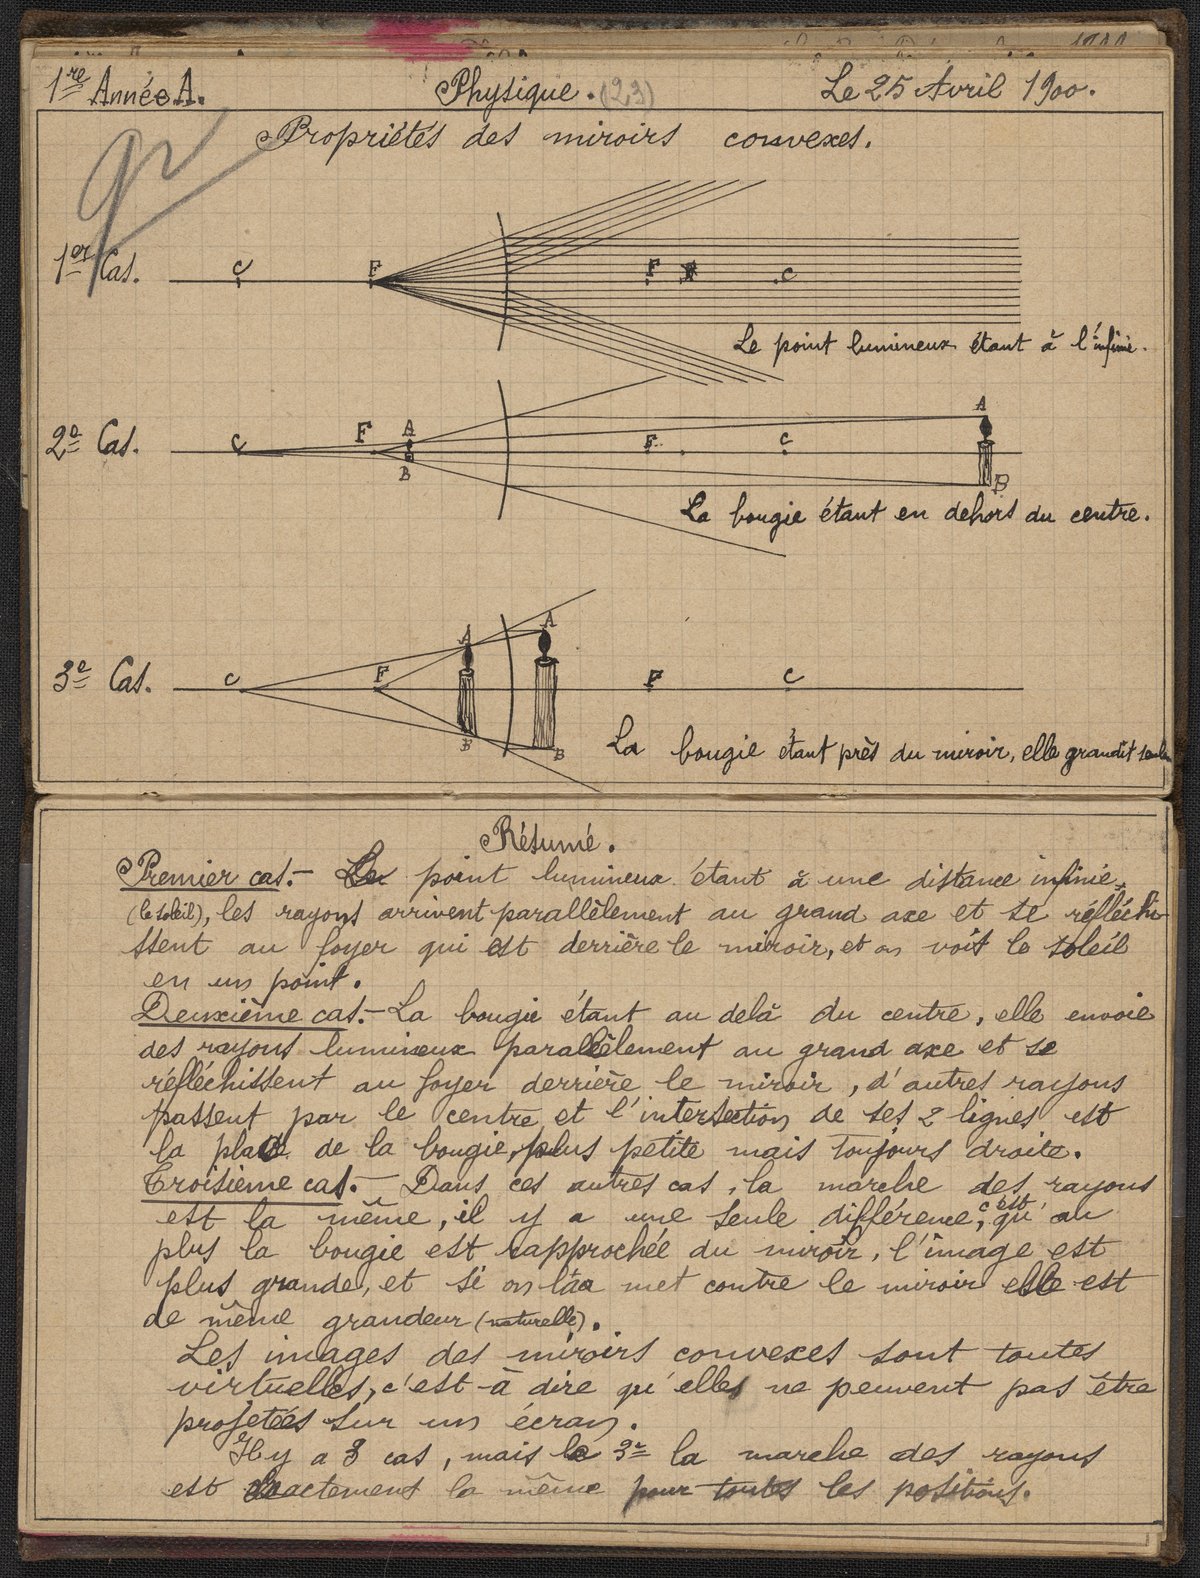 1re Année A.
Physique. (23)
Le 25 Avril 1900.
Propriétés des miroirs convexes.
1er Cas.
C F F C
Le point lumineux étant à l'infini.
2e Cas.
C F A B F C A B
La bougie étant en dehors du centre.
3e Cas.
C F A B A B F C
La bougie étant près du miroir, elle grandit
Résumé.
Premier cas.- Le point lumineux étant à une distance infinie,
(le soleil), les rayons arrivent parallèlement au grand axe et se réfléchi-
ssent au foyer qui est derrière le miroir, et on voit le soleil
en un point.
Deuxième cas.- La bougie étant au delà du centre, elle envoie
des rayons lumineux parallèlement au grand axe et se
réfléchissent au foyer derrière le miroir, d'autres rayons
passent par le centre et l'intersection de ses 2 lignes est
la place de la bougie, plus petite mais toujours droite.
Troisième cas.- Dans ces autres cas, la marche des rayons
est la même, il y a une seule différence, c'est qu'au
plus la bougie est rapprochée du miroir, l'image est
plus grande, et si on la met contre le miroir elle est
de même grandeur (naturelle).
Les images des miroirs convexes sont toutes
virtuelles, c'est-à dire qu'elles ne peuvent pas être
projetées sur un écran.
Il y a 3 cas, mais le 3e la marche des rayons
est exactement la même pour toutes les positions.